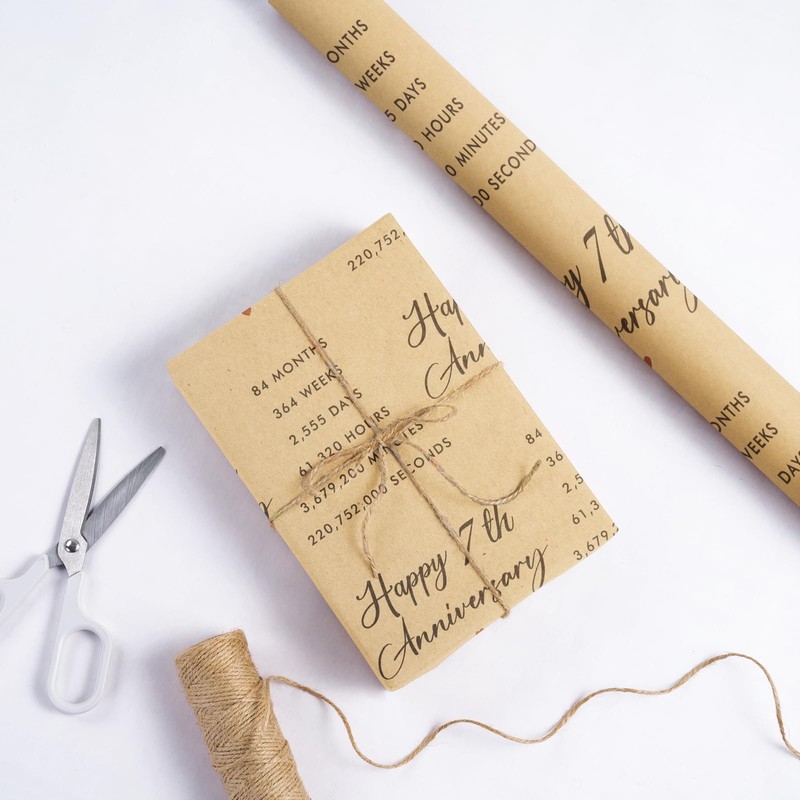 220,752,
Hap
Ann
84 MONTHS
364 WEEKS
2,555 DAYS
61,320 HOURS
3,679,200 MINUTES
220,752,000 SECONDS
Happy 7th
Anniversary
84
36
2,5
61,3
3,679,2
ONTHS
WEEKS
5 DAYS
HOURS
0 MINUTES
00 SECOND
y 7th
versary
ONTHS
WEEKS
DAYS